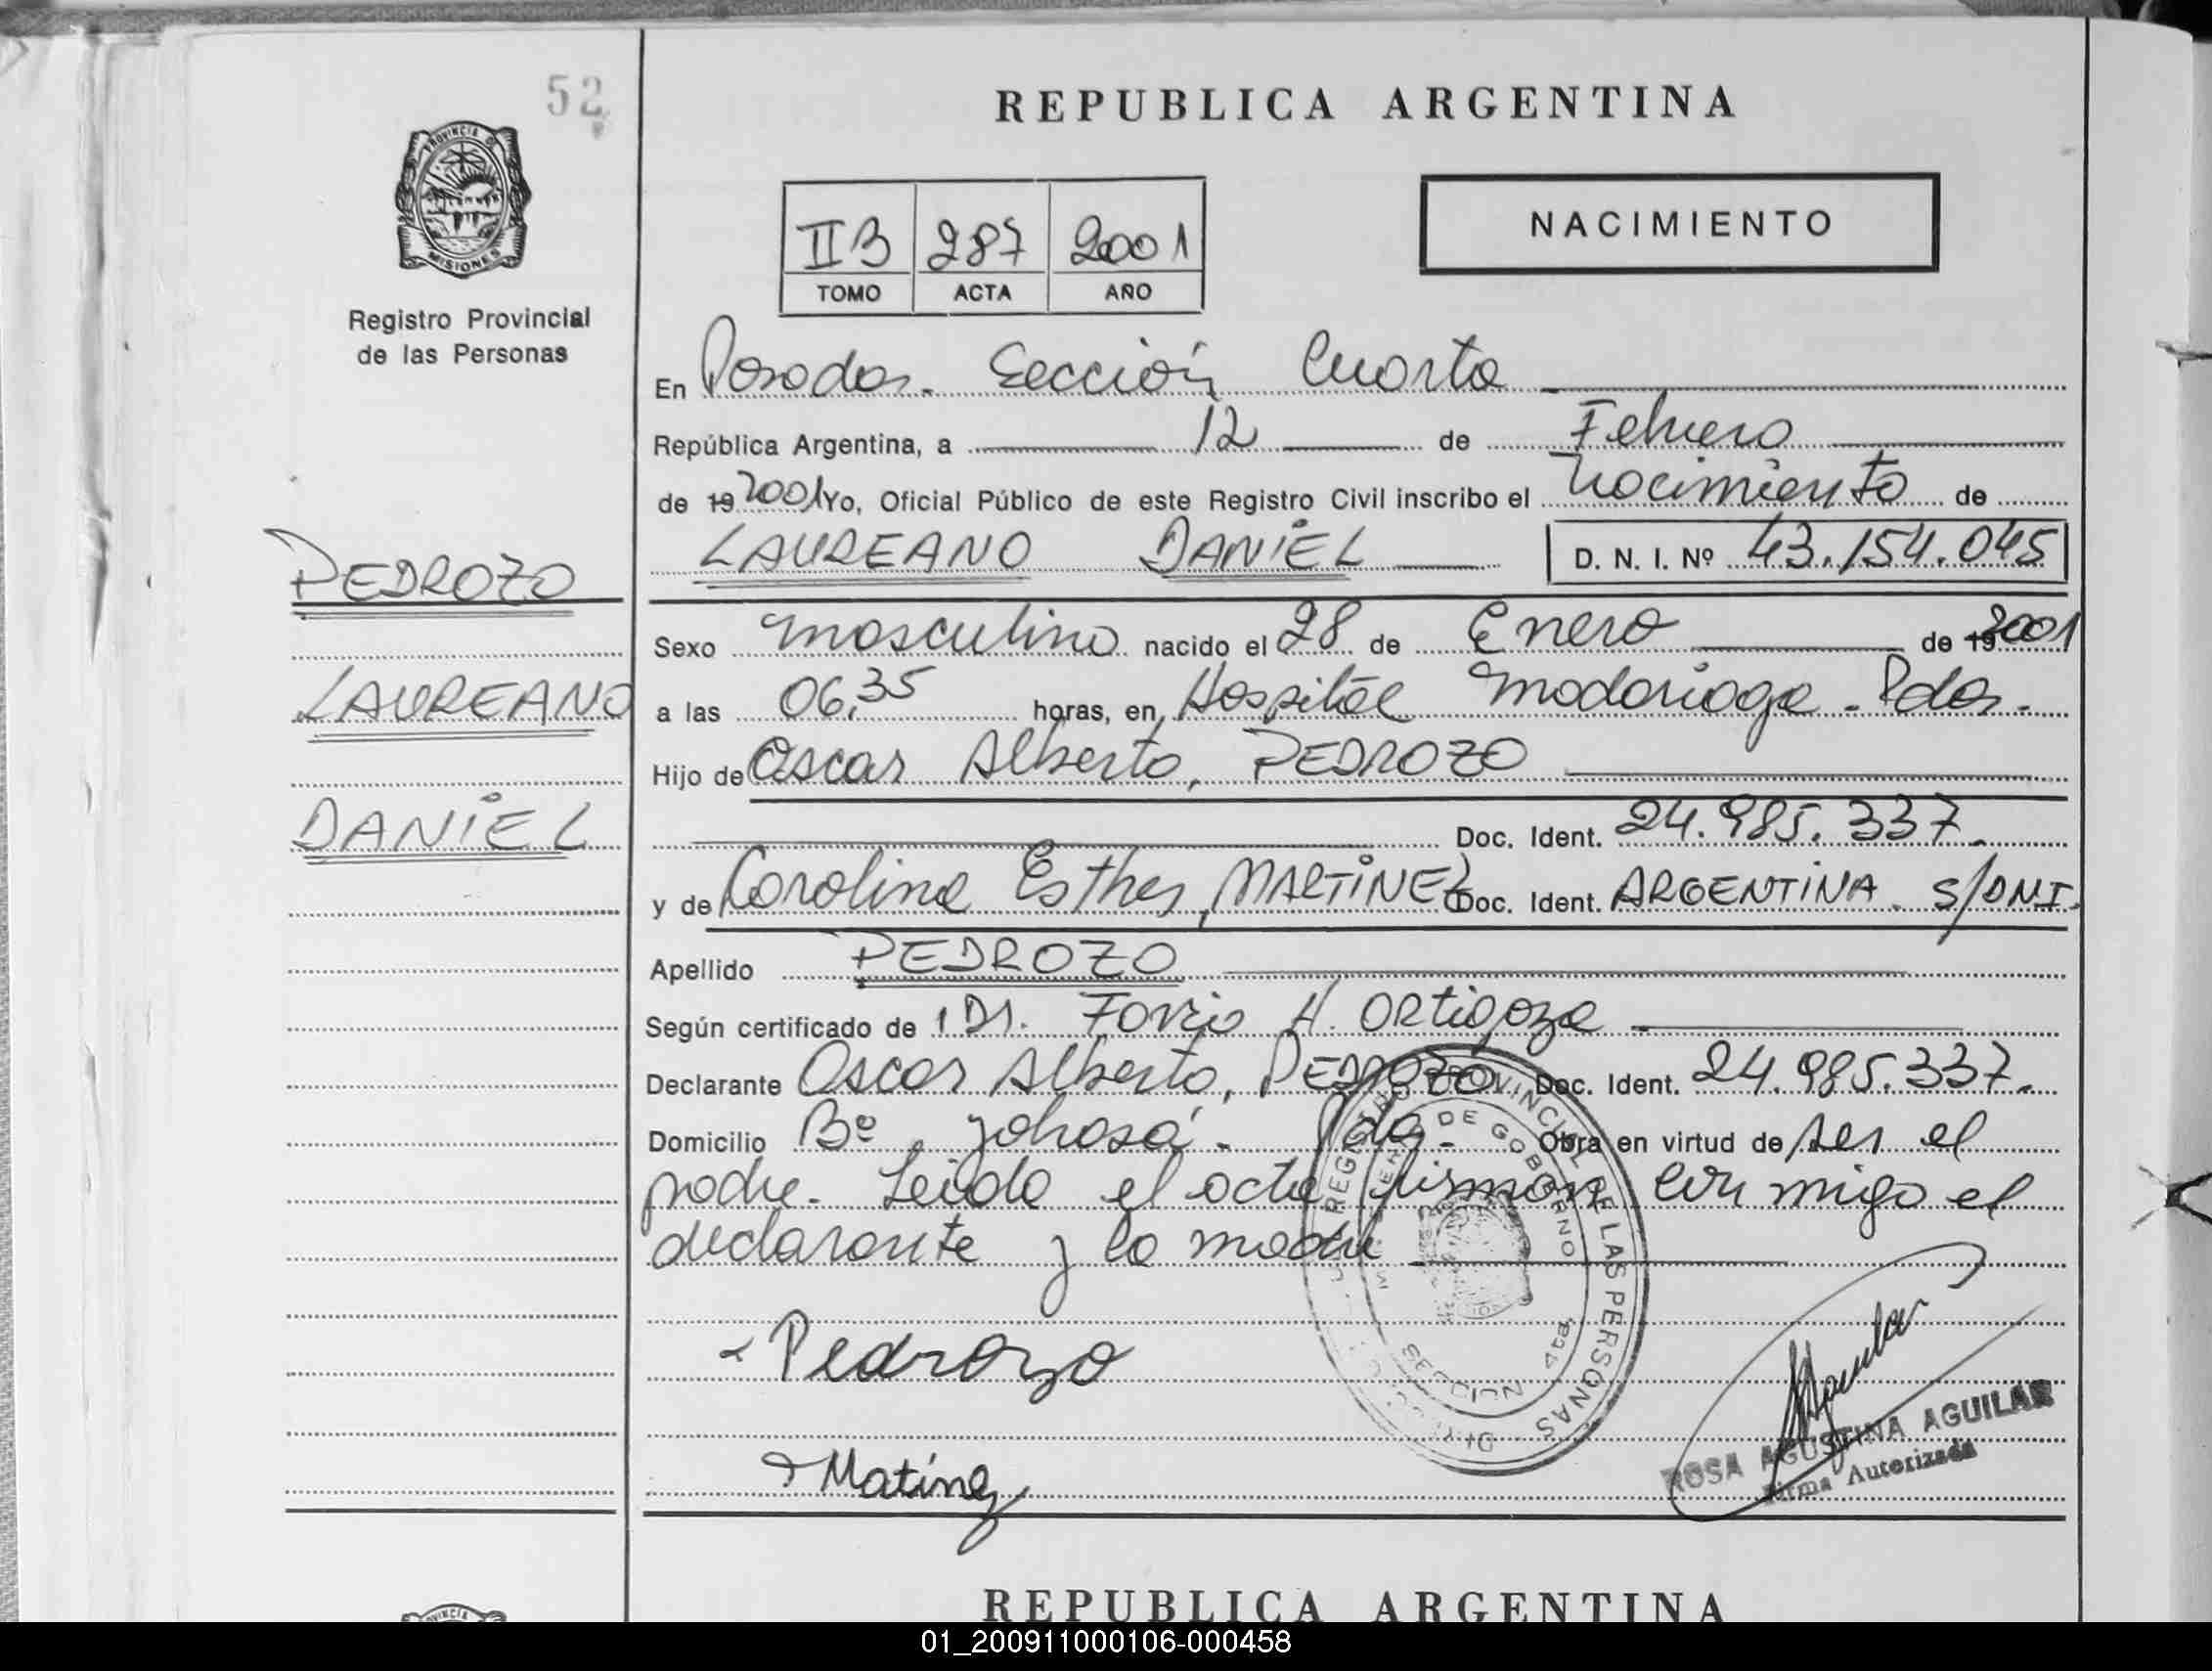 52
REPUBLICA ARGENTINA
PROVINCIA D
MISIONES
Registro Provincial
de las Personas
NACIMIENTO
II B 287 2001
TOMO ACTA AÑO
En Posadas. Sección Cuarta
República Argentina, a 12 de Febrero
de 19 2001 Yo, Oficial Público de este Registro Civil inscribo el Nacimiento de
LAUREANO DANIEL D. N. I. Nº 43.154.045
PEDROZO
LAUREANO
DANIEL
Sexo masculino nacido el 28 de Enero de 19 2001
a las 06,35 horas, en Hospital Madariaga - Pdas.
Hijo de Oscar Alberto, PEDROZO
Doc. Ident. 24.985.337.
y de Carolina Esther, MARTINEZ Doc. Ident. ARGENTINA. S/DNI.
Apellido PEDROZO
Según certificado de Dr. H. Ortigoza
Declarante Oscar Alberto, PEDROZO Doc. Ident. 24.985.337.
Domicilio Bº Pdas. Obra en virtud de ser el
padre. Leída el acta firman conmigo el
declarante y la madre
REGISTRO PROVINCIAL DE LAS PERSONAS
DE GOBIERNO
SECCION 4ta.
Pedrozo
Matinez
ROSA AGUSTINA AGUILAR
Firma Autorizada
REPUBLICA ARGENTINA
01_200911000106-000458